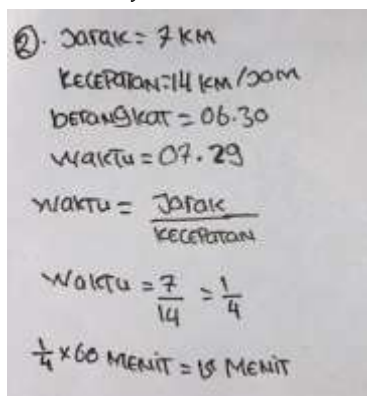 ②. Jarak = 7 KM
Kecepatan = 14 km/Jam
berangkat = 06.30
Waktu = 07.29
Waktu = Jarak / Kecepatan
Waktu = 7/14 = 1/4
1/4 x 60 MENIT = 15 MENIT